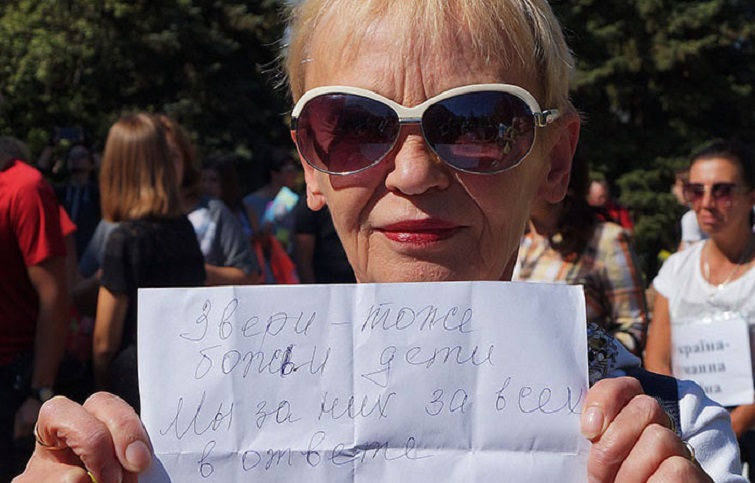 Звери - тоже
божьи дети
Мы за них за всех
в ответе
країна-
манна
їна